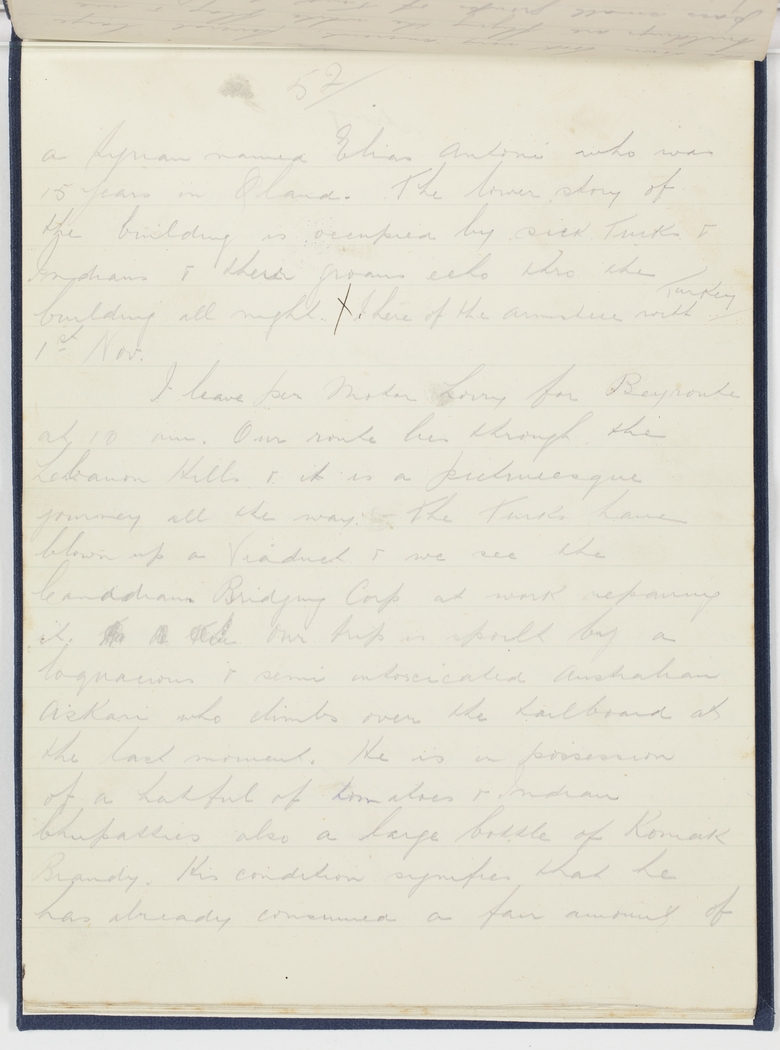 52/
a Syrian named Elias Antoni who was
15 years in Q'land. The lower story of
the building is occupied by sick Turks &
Indians & their groans echo thro the
building all night. X I hear of the armistice with Turkey
1st Nov.
I leave per Motor Lorry for Beyroute
at 10 am. Our route lies through the
Lebanon Hills & it is a picturesque
journey all the way. The Turks have
blown up a Viaduct & we see the
Canadian Bridging Corp at work repairing
it. Our trip is spoilt by a
loquacious & semi intoxicated Australian
Askari who climbs over the tailboard at
the last moment. He is in possession
of a hatful of tomatoes & Indian
Chupatties also a large bottle of Koniak
Brandy. His condition signifies that he
has already consumed a fair amount of